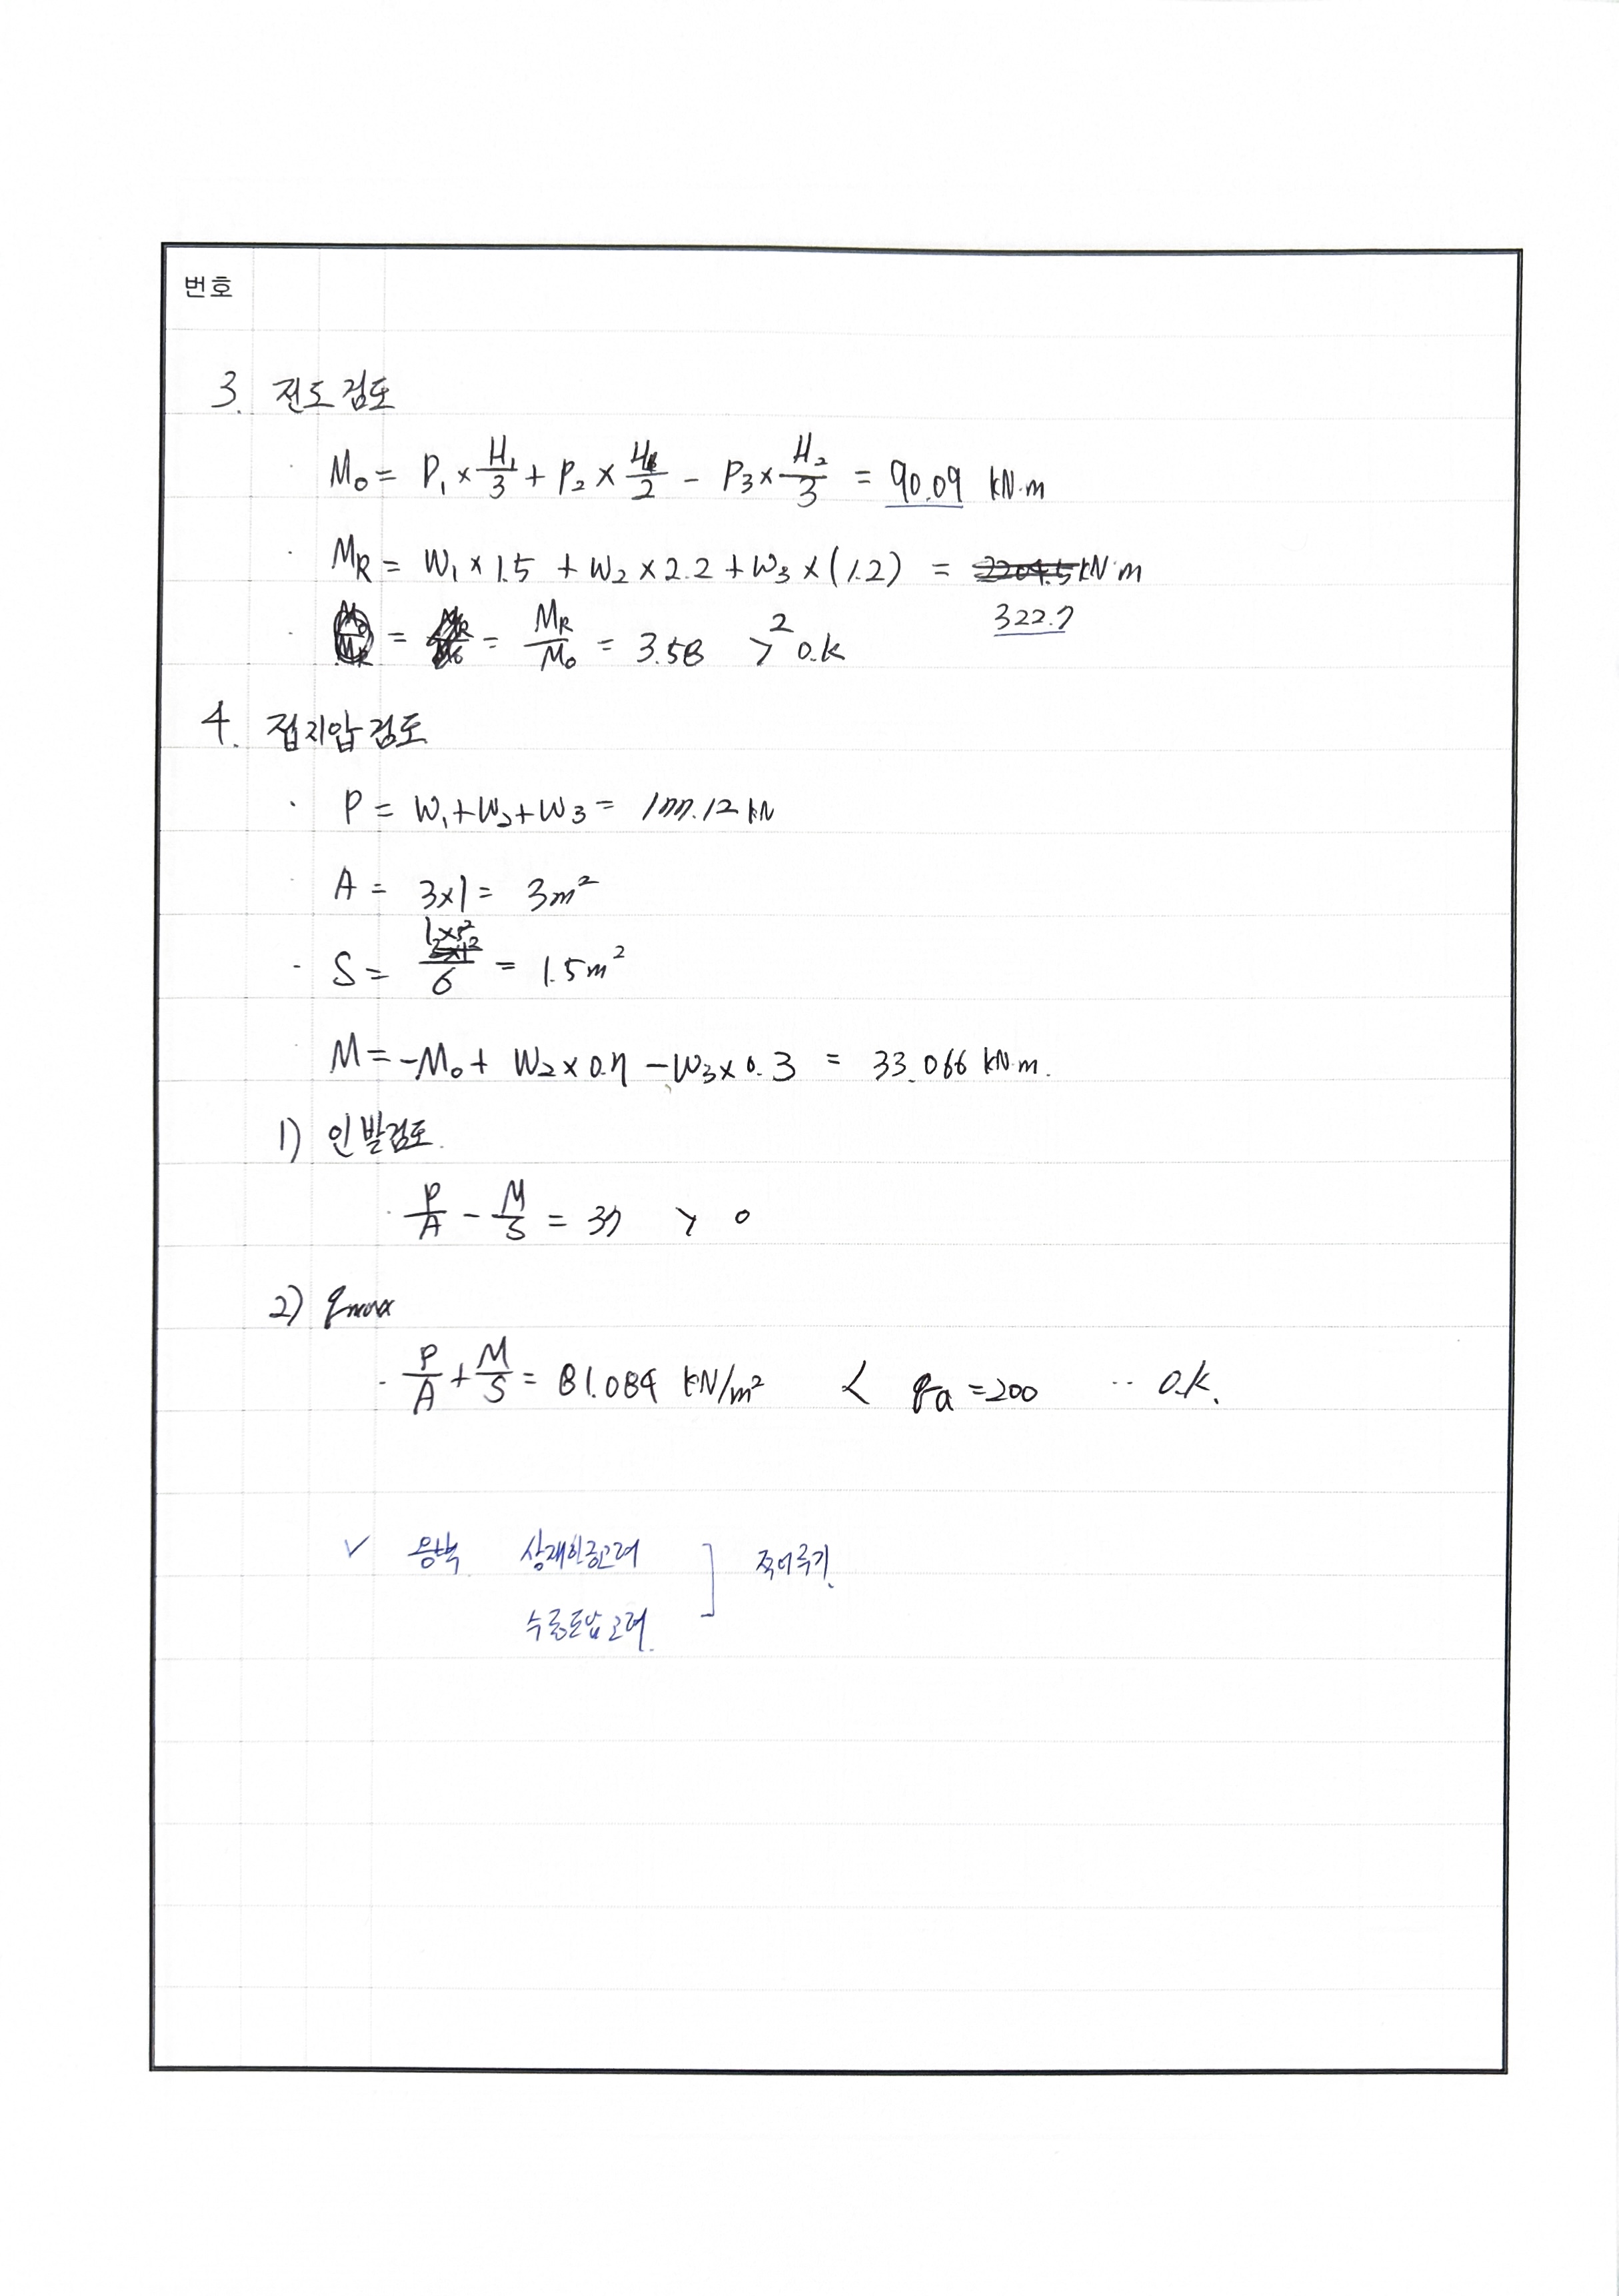 번호
3. 전도검토
· M₀ = P₁ × H₁/3 + P₂ × H₁/2 - P₃ × H₂/3 = 90.09 kN·m
· MR = W₁ × 1.5 + W₂ × 2.2 + W₃ × (1.2) = 2204.5 kN·m
322.7
· = = MR/M₀ = 3.58 > 2 O.K
4. 접지압검토
· P = W₁ + W₂ + W₃ = 177.12 kN
· A = 3×1 = 3m²
· S = 1×3²/6 = 1.5m²
· M = -M₀ + W₂ × 0.7 - W₃ × 0.3 = 33.066 kN·m.
1) 인발검토.
· P/A - M/S = 37 > 0
2) qmax
· P/A + M/S = 81.084 kN/m² < qa = 200 ·· O.K.
✓ 상재하중고려 ] 적어주기.
수동토압고려.